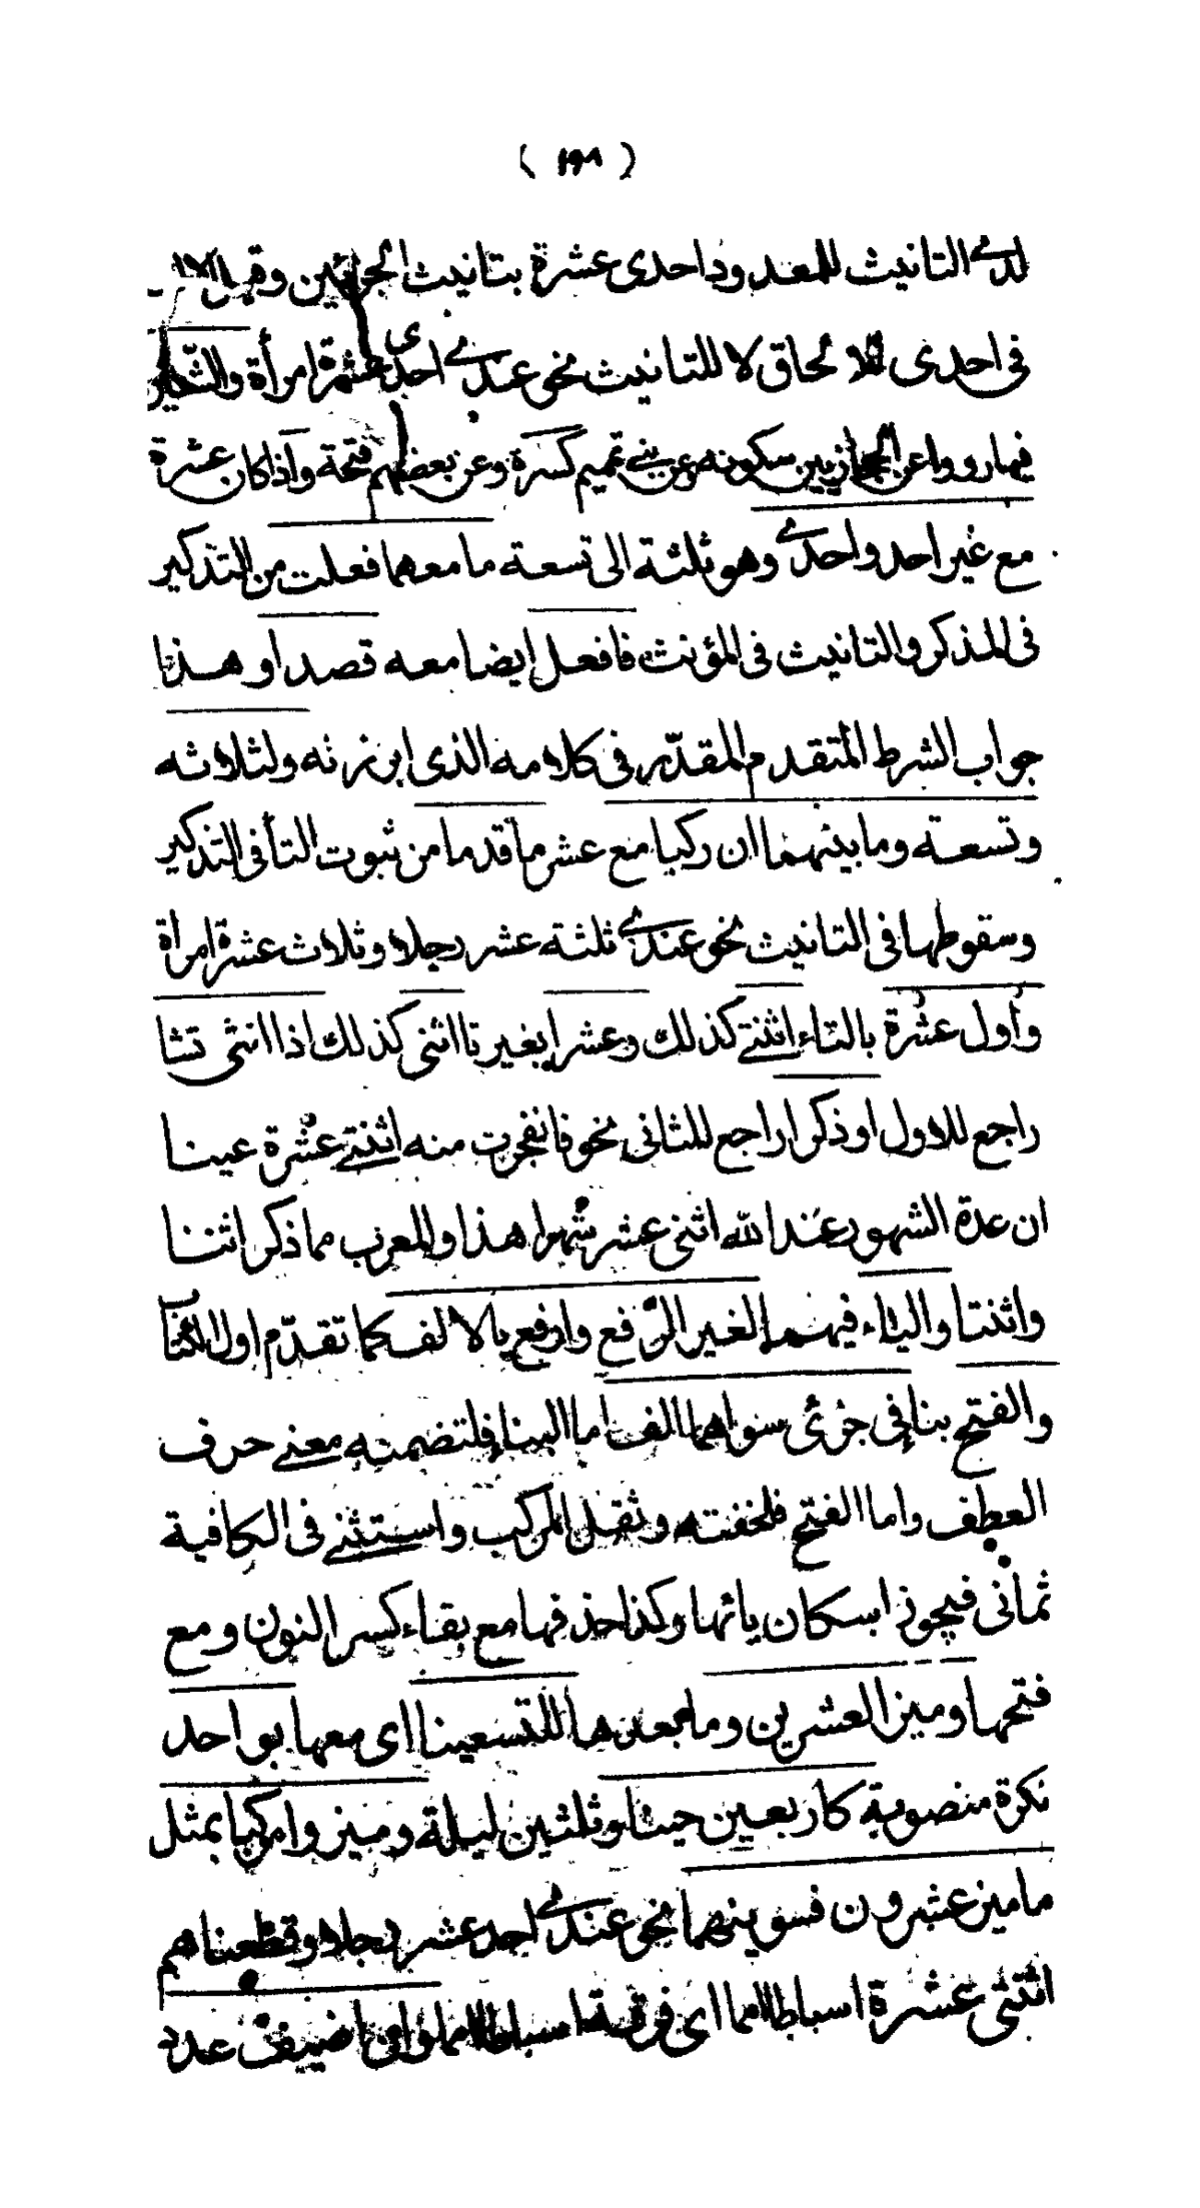 ( ١٩٨ )
لدى التانيث للمعدود احدى عشرة بتانيث الجزئين وقيل الالف
فى احدى للالحاق لا للتانيث نحو عندى احدى عشرة امرأة والشين
فيها رووا عن الحجازيين سكونه وعن بنى تميم كسرة وعن بعضهم فتحة واذا كان عشرة
مع غير احد واحدى وهو ثلثة الى تسعة ما معهما فعلت من التذكير
فى المذكر والتانيث فى المؤنث فافعل ايضا معه قصدا وهذا
جواب الشرط المتقدم المقدّر فى كلامه الذى ابرزته ولثلاثه
وتسعة وما بينهما ان ركبا مع عشر ما قدما من ثبوت التأ فى التذكير
وسقوطها فى التانيث نحو عندى ثلثة عشر رجلا وثلاث عشرة امراة
وأول عشرة بالتاء اثنتى كذلك وعشرا بغير تا اثنى كذلك اذا انثى تشا
راجع للاول او ذكرا راجع للثانى نحو فانفجرت منه اثنتى عشرة عينا
ان عدة الشهور عند الله اثنى عشر شهرا هذا والمعرب مما ذكر اثنا
واثنتا والياء فيهما لغير الرّفع وارفع بالالف كما تقدّم اول الكتاب
والفتح بنا فى جزئى سواهما الف اما البنا فلتضمنه معنى حرف
العطف واما الفتح فلخفته وثقل المركب واستثنى فى الكافية
ثمانى فيجوز اسكان يائها وكذا حذفها مع بقاء كسر النون ومع
فتحها وميز العشرين وما بعدها للتسعينا اى معها بواحد
نكرة منصوبة كاربعين حينا وثلثين ليلة وميزوا مركبا بمثل
ما ميز عشرون فسوينهما نحو عندى احد عشر رجلا وقطعناهم
اثنتى عشرة اسباطا امما اى فرقة اسباطا امما وان اضيف عدد